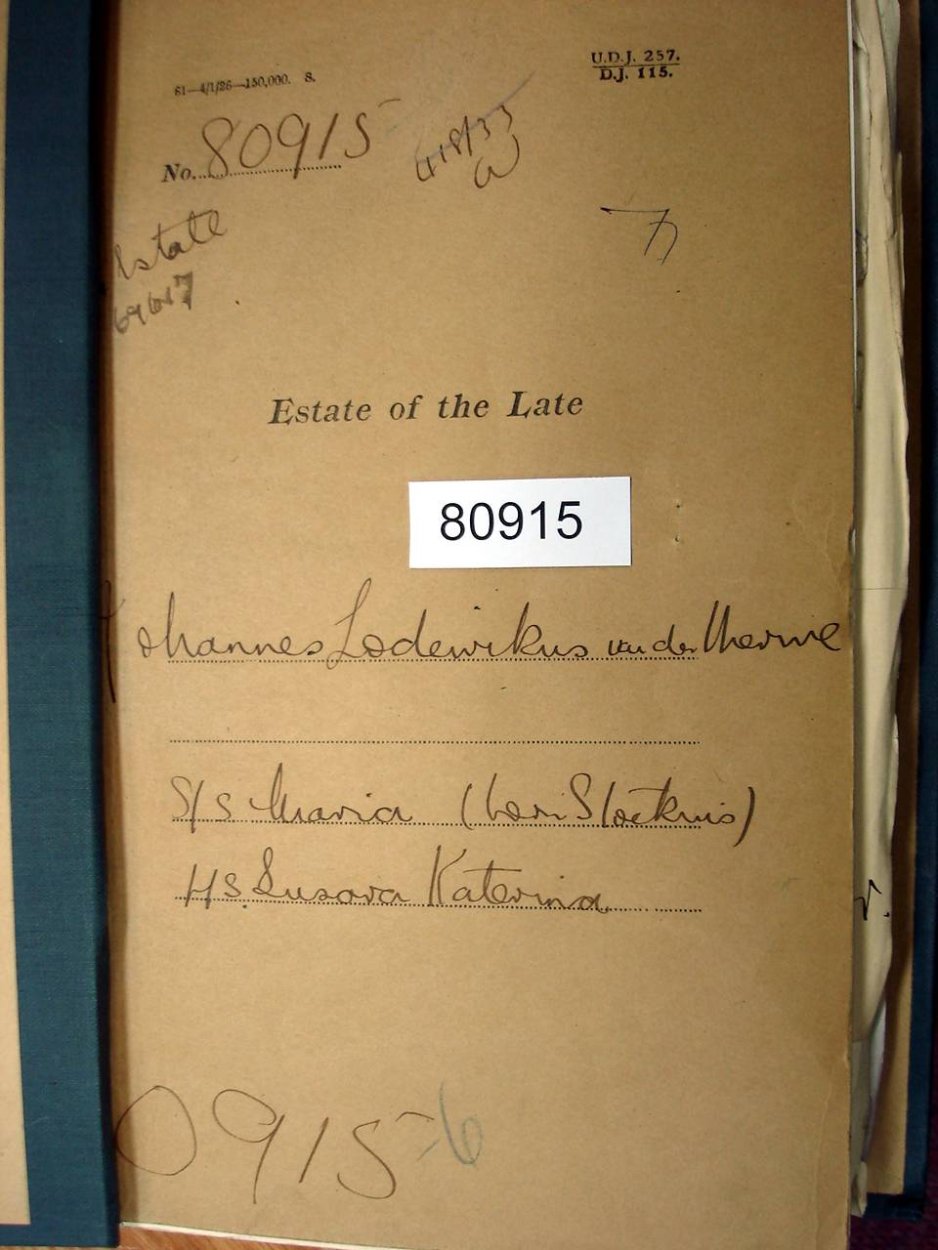 81—4/1/26—150,000. S.
U.D.J. 257.
D.J. 115.
No. 80915
Estate
69617
7
Estate of the Late
80915
Johannes Lodewikus van der Merwe
S/S Maria (born Sloetkuis)
H/S Susara Katerina
0915-6